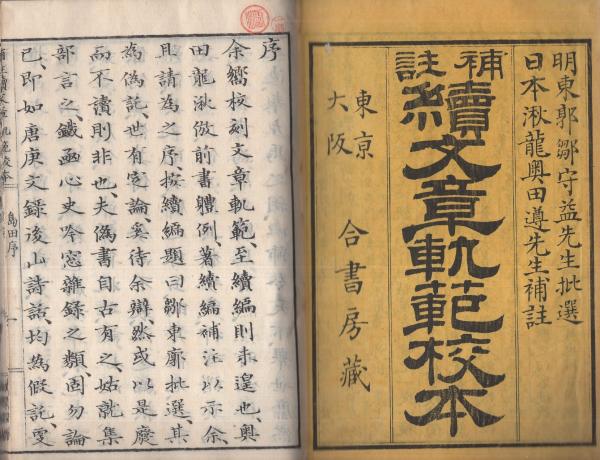 明東郭鄒守益先生批選
日本湫龍奥田遵先生補註
補註
續文章軌範校本
東京
大阪
合書房藏
序
余嚮校刻文章軌範、至續編則未遑也、奥
田龍湫倣前書體例、著續編補注以示余
且請為之序、按續編題曰鄒東廓批選、其
為偽託、世有定論、奚待余辯、然或以是廢
而不讀則非也、夫偽書自古有之、姑就集
部言之、鐵函心史吟窓雜錄之類、固勿論
已、即如唐庚文錄後山詩話、均為假託、雯
島田序